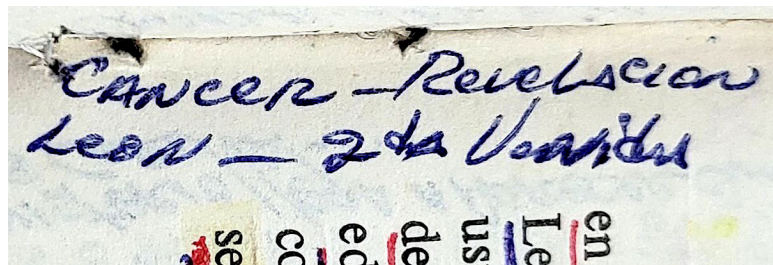 CANCER - Revelacion
Leon - 2da Versión
en
Le
us
de
ed
co
se